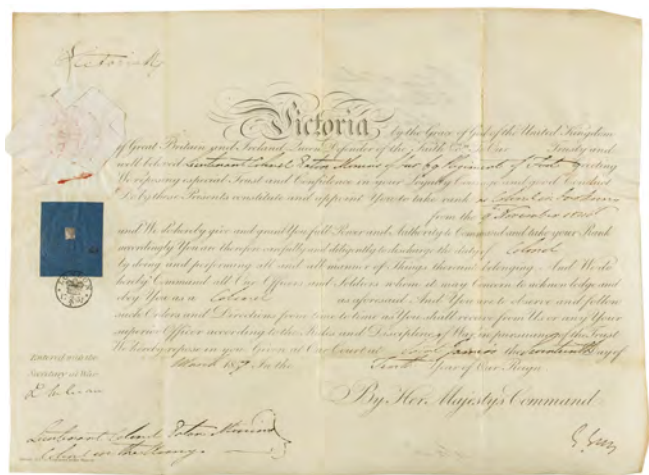 Victoria R
Victoria by the Grace of God of the United Kingdom
of Great Britain and Ireland, Queen, Defender of the Faith &c. To Our Trusty and
well beloved Lieutenant Colonel Eaton Monins of Our 69 Regiment of Foot Greeting
We reposing especial Trust and Confidence in your Loyalty Courage and good Conduct
Do by these Presents constitute and appoint You to take rank as Colonel in Our Army
from the November
and We do hereby give and grant You full Power and Authority to Command and take your Rank
accordingly You are therefore carefully and diligently to discharge the duty of Colonel
by doing and performing all and all manner of Things thereunto belonging And We do
hereby Command all Our Officers and Soldiers whom it may Concern to acknowledge and
obey You as a Colonel as aforesaid And You are to observe and follow
such Orders and Directions from time to time as You shall receive from Us or any Your
superior Officer according to the Rules and Discipline of War in pursuance of the Trust
We hereby repose in you Given at Our Court at Saint James's the Day of
March In the Year of Our Reign
Entered with the
Secretary at War
By Her Majesty's Command
G Grey
Lieutenant Colonel Eaton Monins
Colonel in the Army